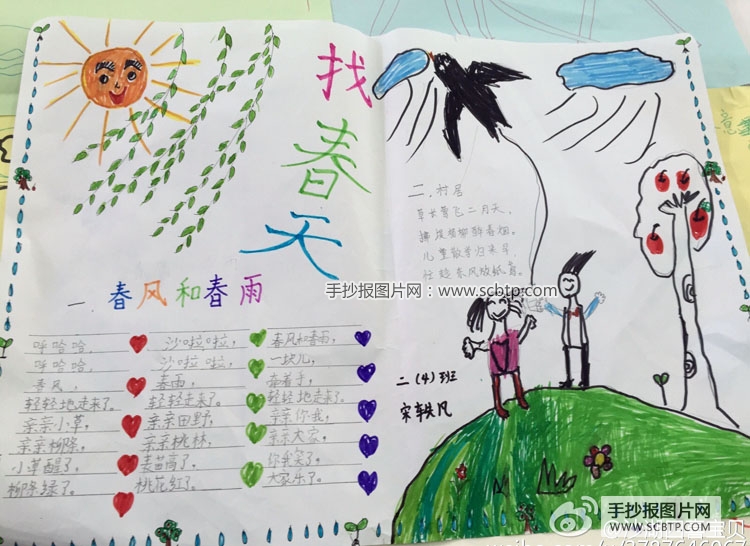 找
春
天
一 春风和春雨
呼哈哈， 沙啦啦， 春风和春雨，
呼哈哈， 沙啦啦， 一块儿，
春风， 春雨， 牵着手，
轻轻地走来了。 轻轻走来了。 轻轻地走来了。
亲亲小草， 亲亲田野， 亲亲你我，
亲亲柳条， 亲亲桃林， 亲亲大家，
小草醒了， 麦苗高了， 你我笑了，
柳条绿了。 桃花红了。 大家乐了。
二、村居
草长莺飞二月天，
拂堤杨柳醉春烟。
儿童散学归来早，
忙趁东风放纸鸢。
二（4）班
手抄报图片网：www.scbtp.com
手抄报图片网
WWW.SCBTP.COM